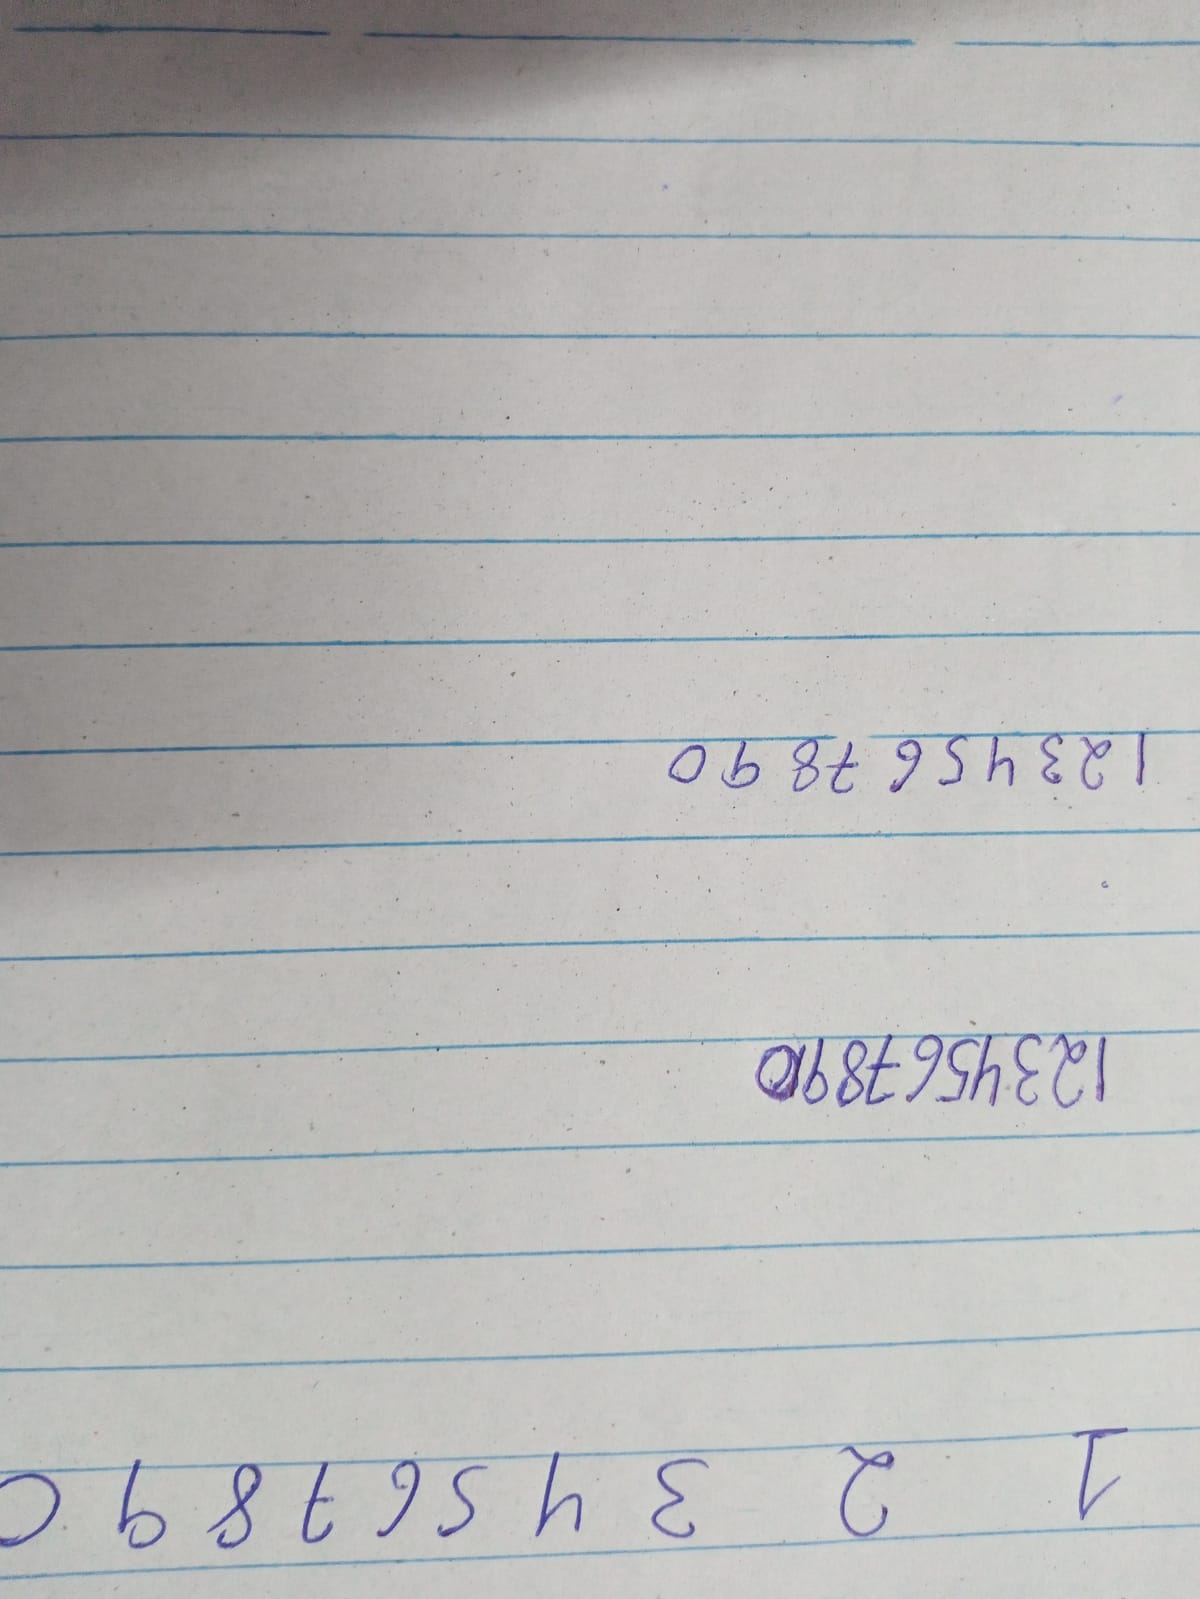 1 2 3 4 5 6 7 8 9 0
1234567890
1 2 3 4 5 6 7 8 9 0